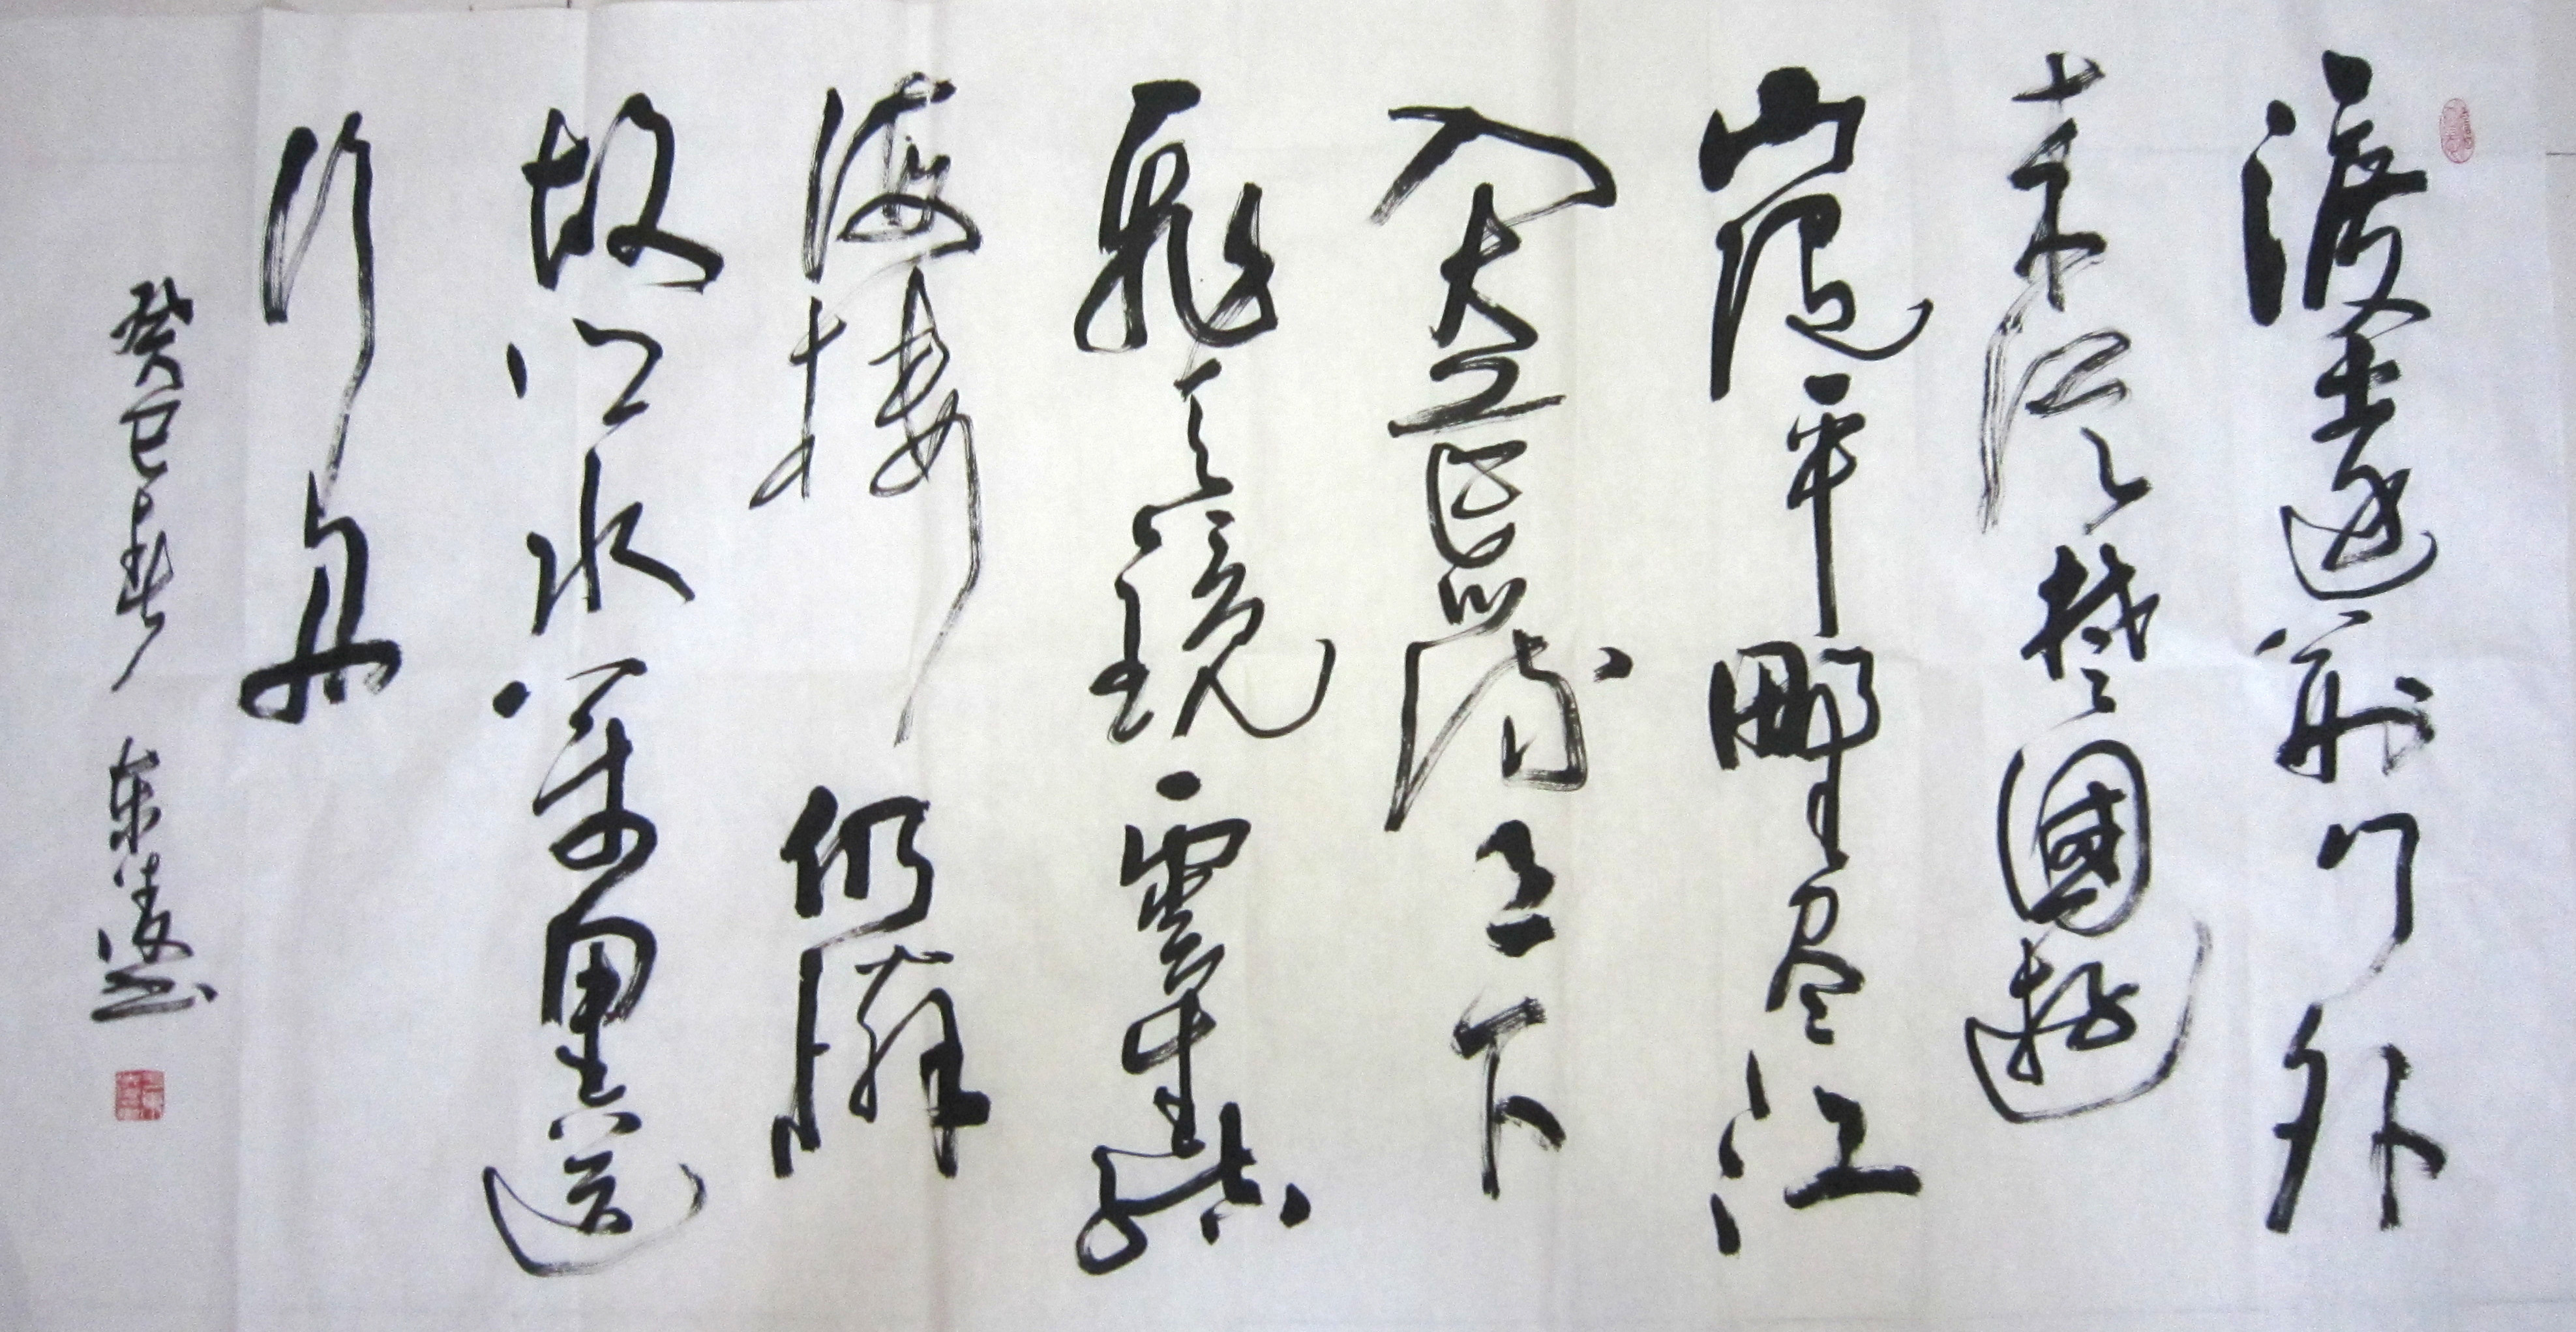 渡遠荆门外
来從楚國遊
山隨平野尽江
入大荒流月下
飛天鏡雲生結
海樓仍憐
故乡水萬里送
行舟
癸巳春 东凌书